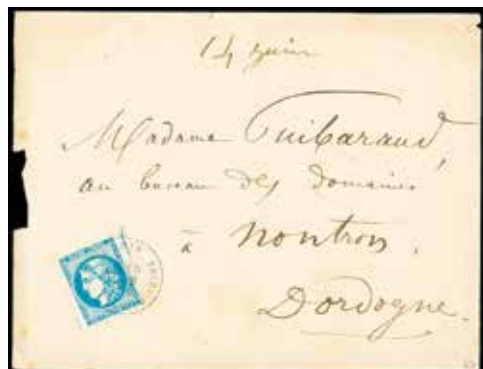 14 juin
Madame Guibaraud,
au bureau des domaines
à Nontron.
Dordogne.